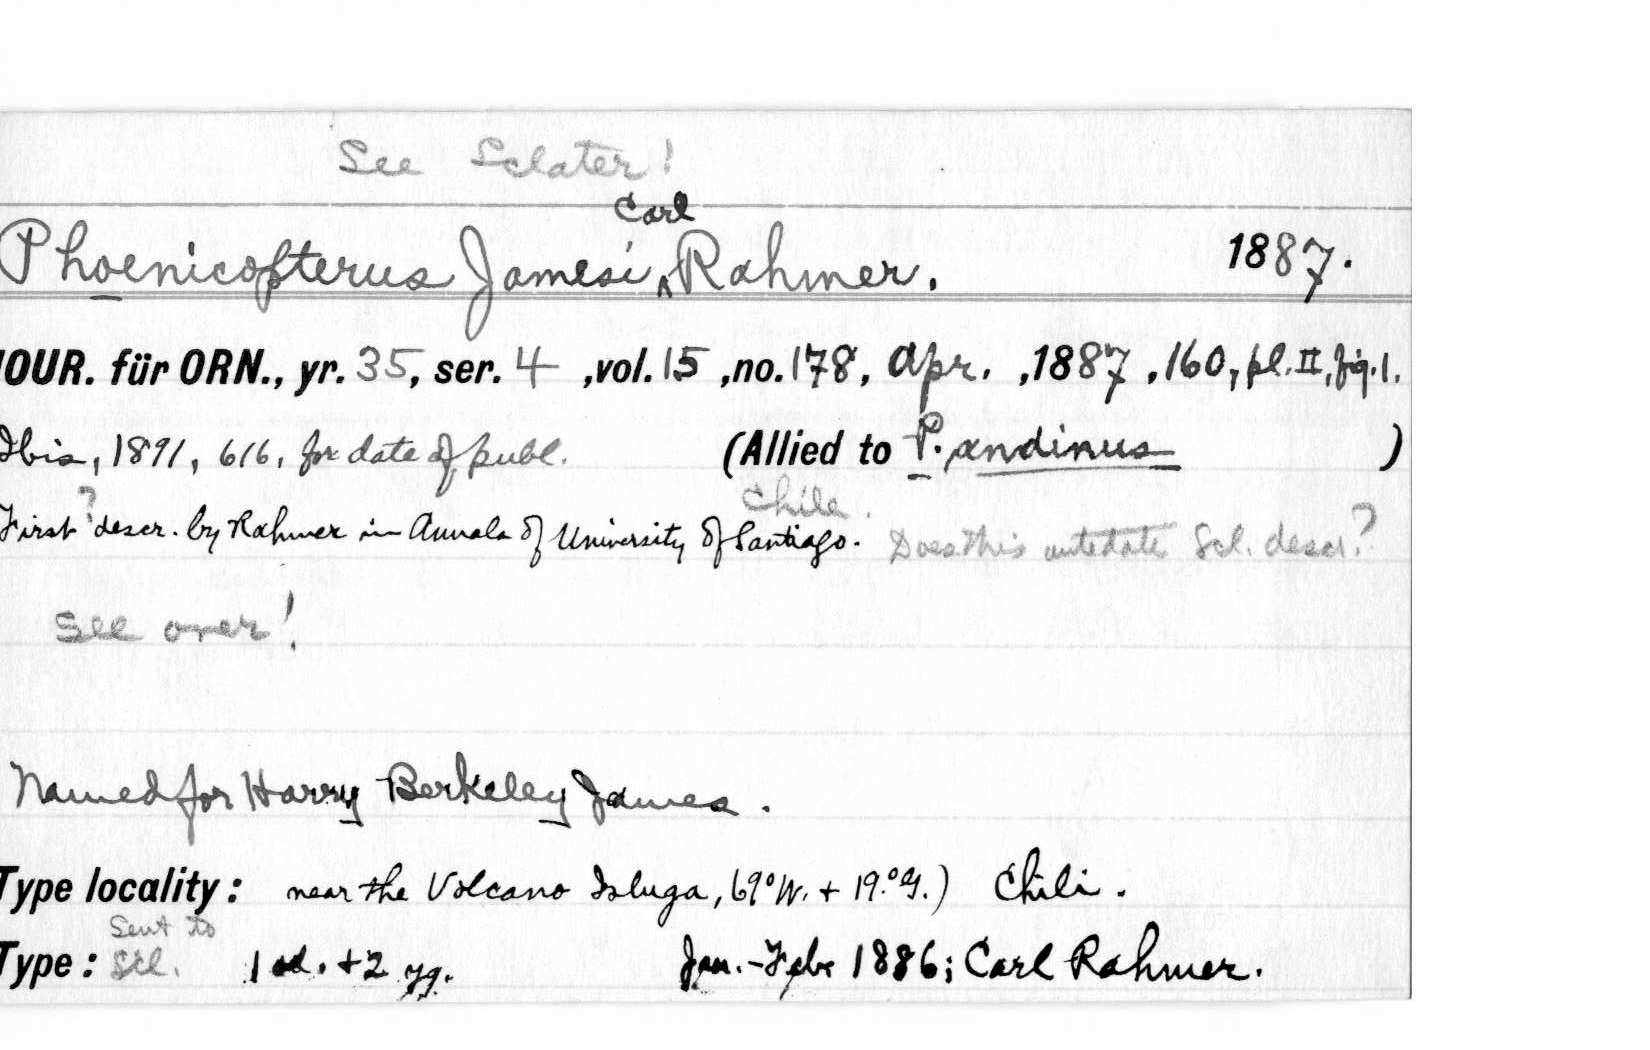 See Sclater!
Carl
Phoenicopterus Jamesi ^ Rahmer. 1887.
JOUR. für ORN., yr. 35, ser. 4 ,vol. 15 ,no. 178, Apr. ,1887 ,160, pl. II, fig. 1.
Ibis, 1891, 616, for date of publ. (Allied to P. andinus )
? Chile.
First descr. by Rahmer in Annals of University of Santiago. Does this antedate Scl. descr.?
See over!
Named for Harry Berkeley James.
Type locality: near the Volcano Isluga, 69° W. + 19.° S.) Chili.
Sent to
Type: Scl. 1 ad. + 2 yg. Jan.-Febr 1886; Carl Rahmer.